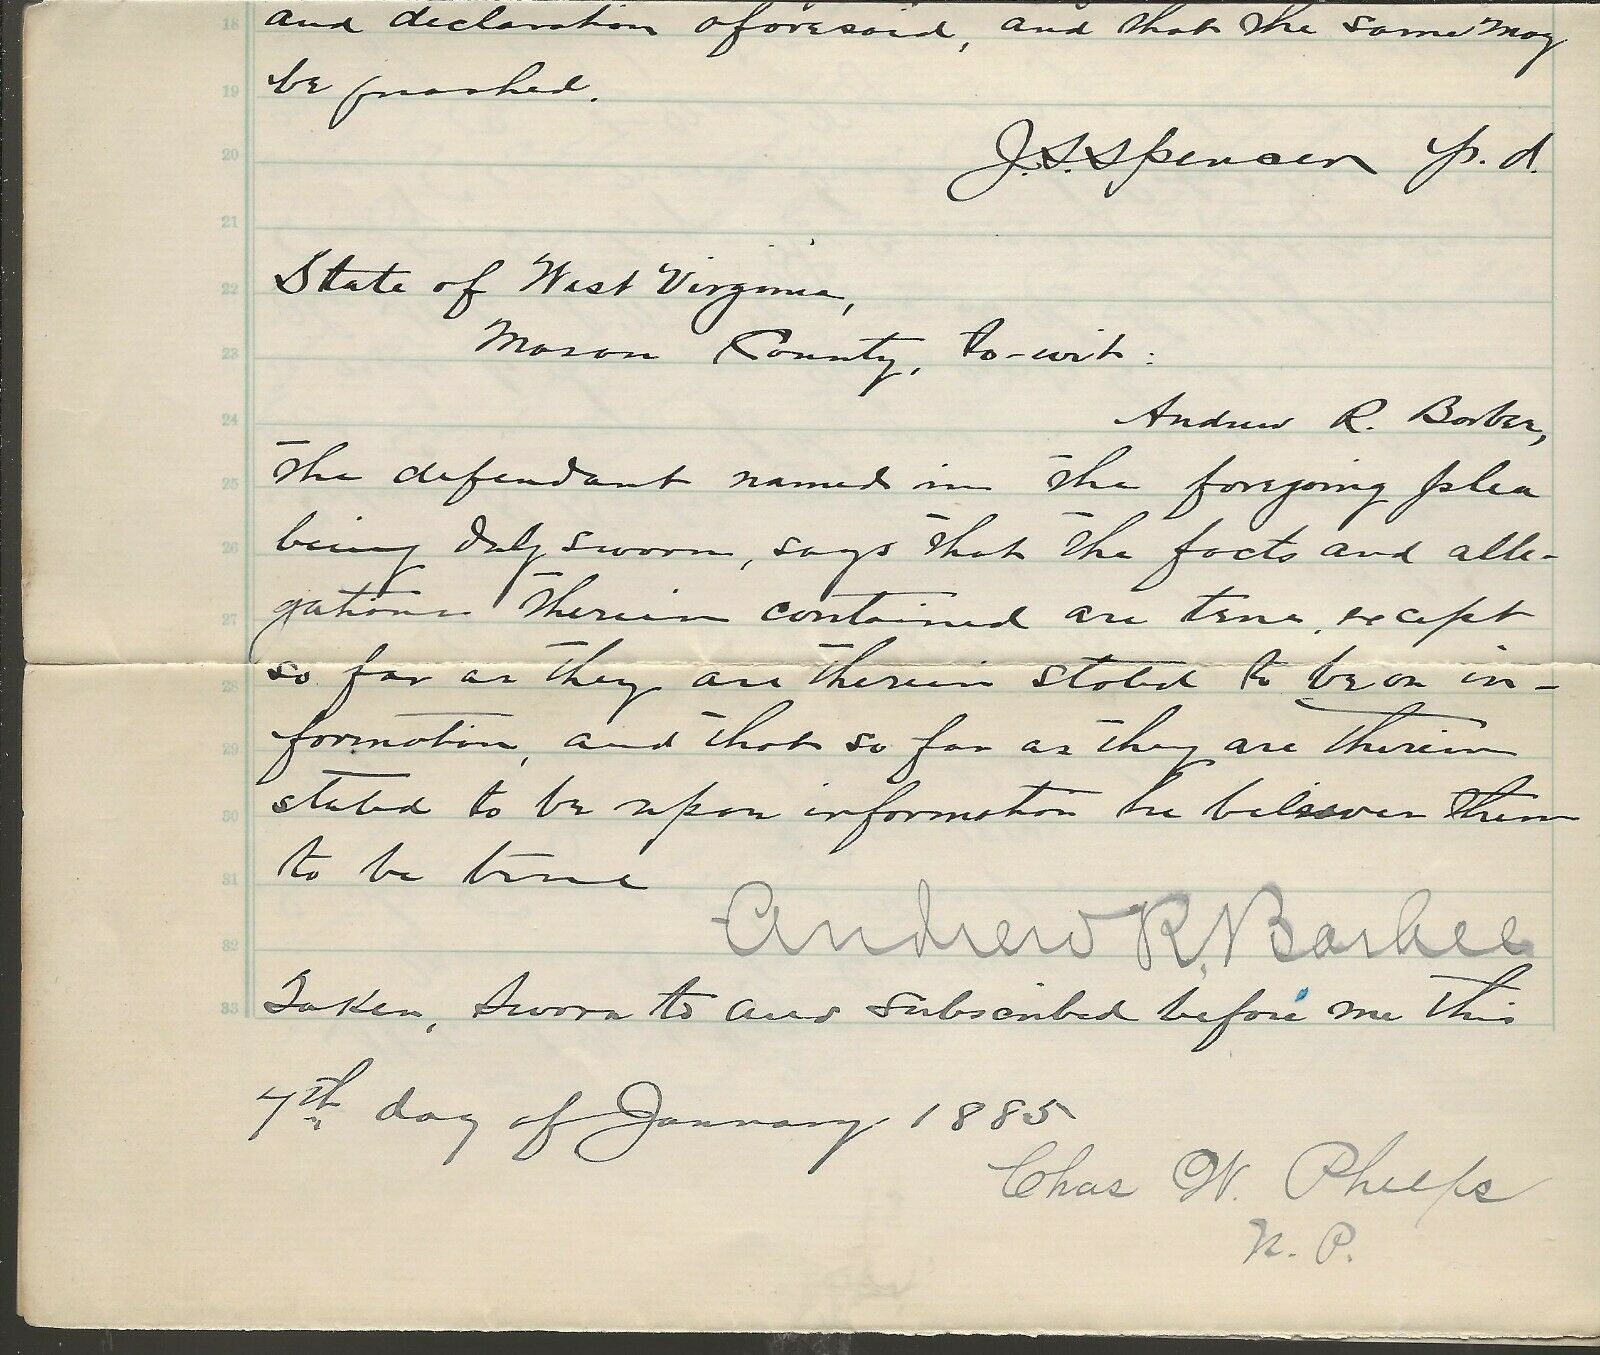 18 and declaration aforesaid, and that the same may
19 be quashed.
20 J. S. Spencer p. d.
21
22 State of West Virginia,
23 Mason County, to-wit:
24 Andrew R. Barbee,
25 the defendant named in the foregoing plea
26 being duly sworn, says that the facts and alle-
27 gations therein contained are true, except
28 so far as they are therein stated to be on in-
29 formation, and that so far as they are therein
30 stated to be upon information he believes them
31 to be true
32 Andrew R. Barbee
33 Taken, sworn to and subscribed before me this
7th day of January 1885
Chas W. Phelps
N. P.